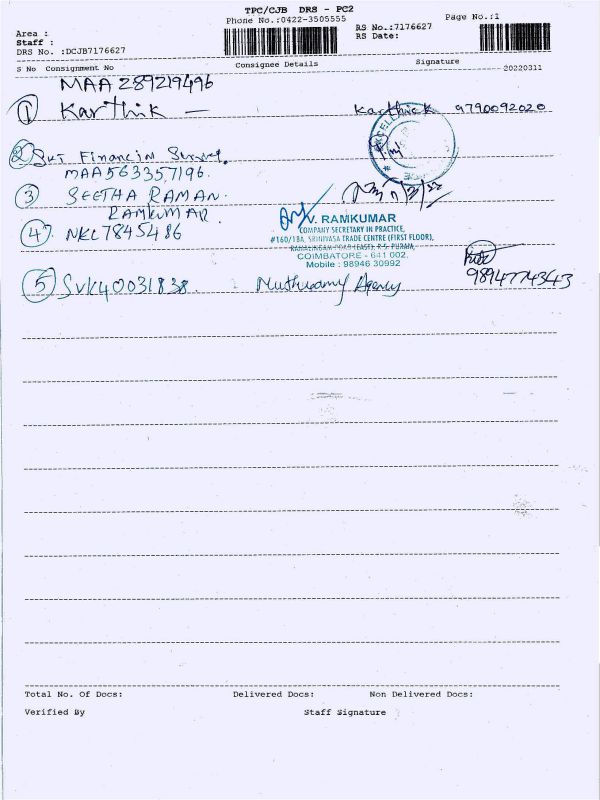 TPC/CJB DRS - PC2
Phone No.:0422-3505555
Page No.:1
Area :
RS No.:7176627
Staff :
RS Date:
DRS No. :DCJB7176627
S No Consignment No
Consignee Details
Signature
20220311
MAA 289219496
1 Karthik —
Karthick 9790092020
2
MAA563357196.
3 SEETHA RAMAN.
RAMKUMAR
V. RAMKUMAR
COMPANY SECRETARY IN PRACTICE,
#160/18A, SRINIVASA TRADE CENTRE (FIRST FLOOR),
COIMBATORE - 641 002.
Mobile : 98946 30992
4). NKL7845486
5 SVK40031838.
Muthusamy Agency
9894774343
Total No. Of Docs:
Delivered Docs:
Non Delivered Docs:
Verified By
Staff Signature